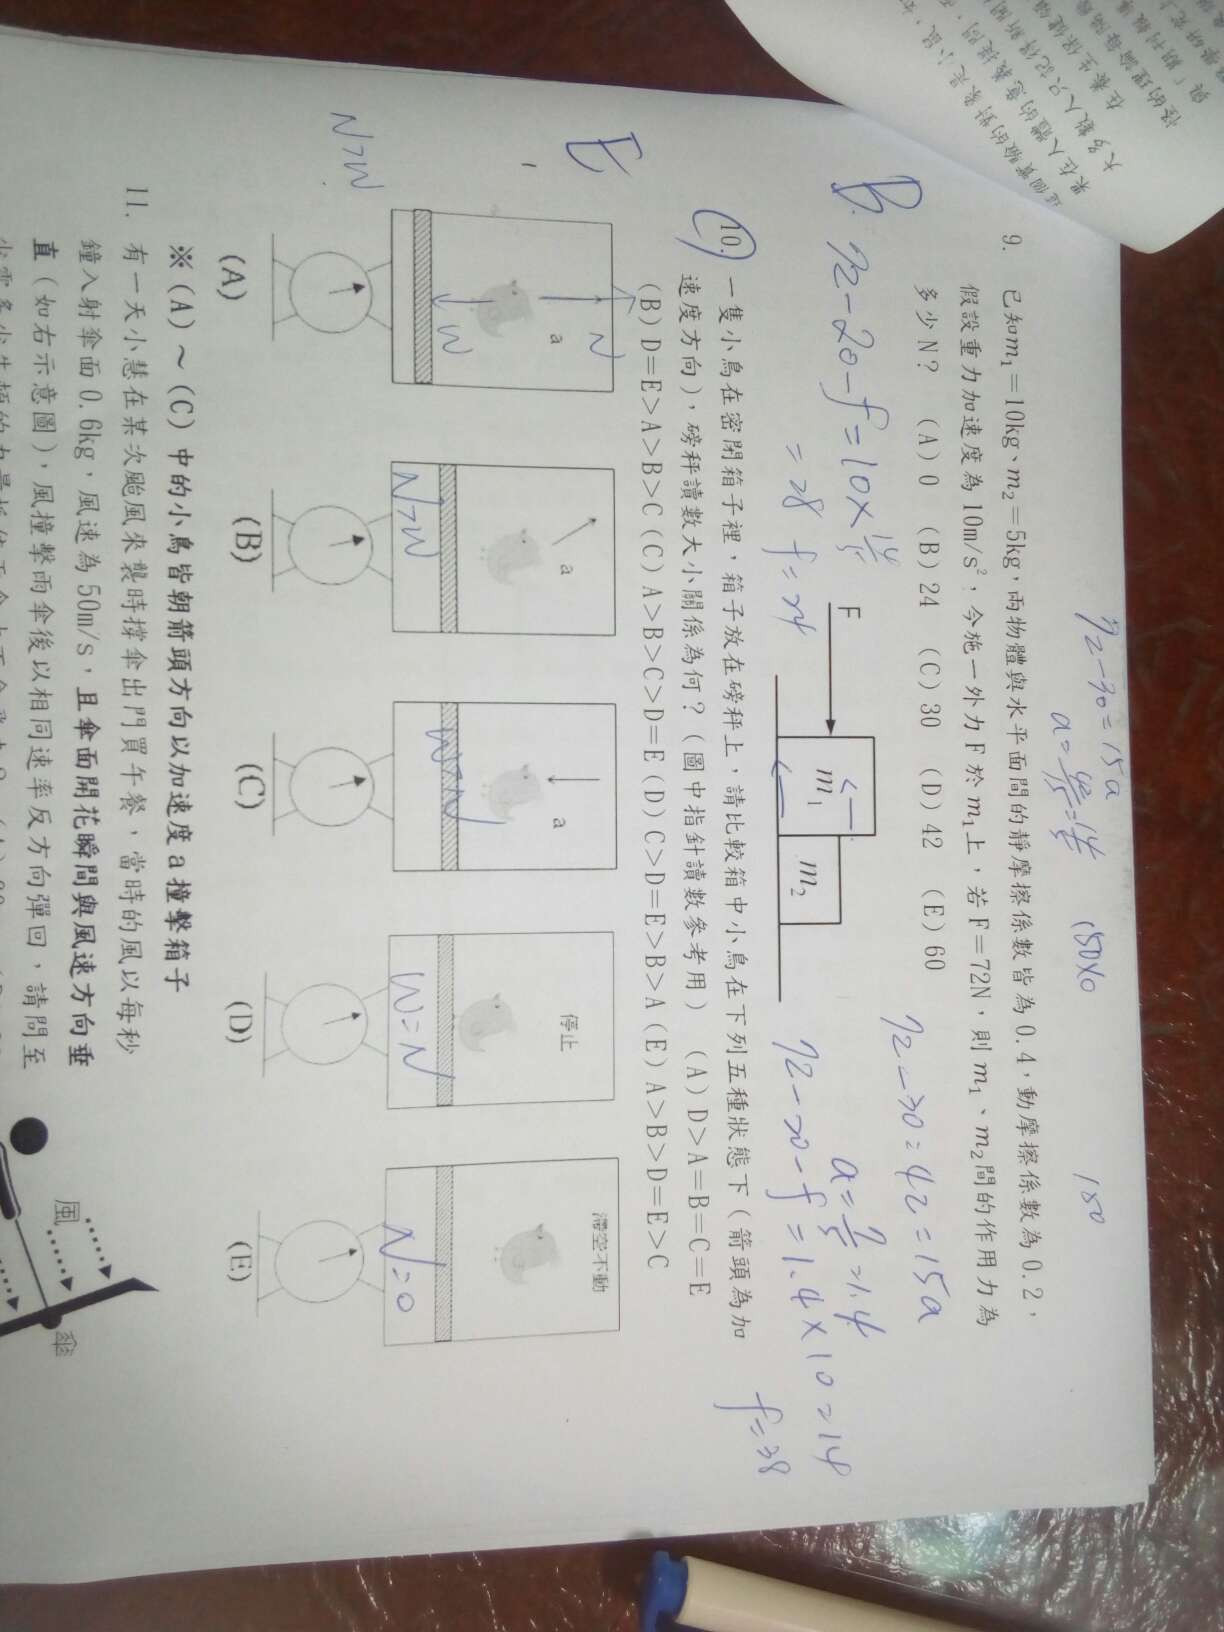 72-30=15a
a=42/15=14/5
150X0
150
9. 已知m₁=10kg、m₂=5kg,兩物體與水平面間的靜摩擦係數皆為0.4,動摩擦係數為0.2,
假設重力加速度為10m/s²,今施一外力F於m₁上,若F=72N,則m₁、m₂間的作用力為
多少N? (A)0 (B)24 (C)30 (D)42 (E)60
B.
72-20-f=10×14/5
=28 f=24
F
m₁
m₂
72-30=42=15a
a=7/5=1.4
72-20-f=1.4×10=14
f=38
E
10. 一隻小鳥在密閉箱子裡,箱子放在磅秤上,請比較箱中小鳥在下列五種狀態下(箭頭為加
速度方向),磅秤讀數大小關係為何?(圖中指針讀數參考用) (A)D>A=B=C=E
(B)D=E>A>B>C(C)A>B>C>D=E(D)C>D=E>B>A(E)A>B>D=E>C
N>W
a
N
W
a
N>W
a
W>N
停止
W=N
滯空不動
N=0
(A)
(B)
(C)
(D)
(E)
※(A)~(C)中的小鳥皆朝箭頭方向以加速度a撞擊箱子
11. 有一天小慧在某次颱風來襲時撐傘出門買午餐,當時的風以每秒
鐘入射傘面0.6kg,風速為50m/s,且傘面開花瞬間與風速方向垂
直(如右示意圖),風撞擊雨傘後以相同速率反方向彈回,請問至
風
傘